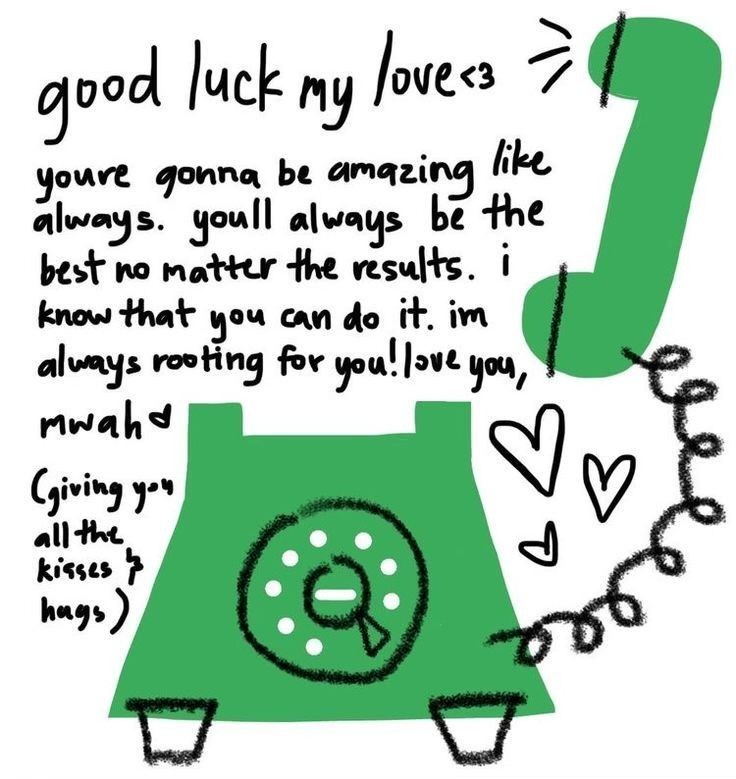 good luck my love<3
youre gonna be amazing like
always. youll always be the
best no matter the results. i
know that you can do it. im
always rooting for you! love you,
mwah♡
(giving you
all the
kisses &
hugs)